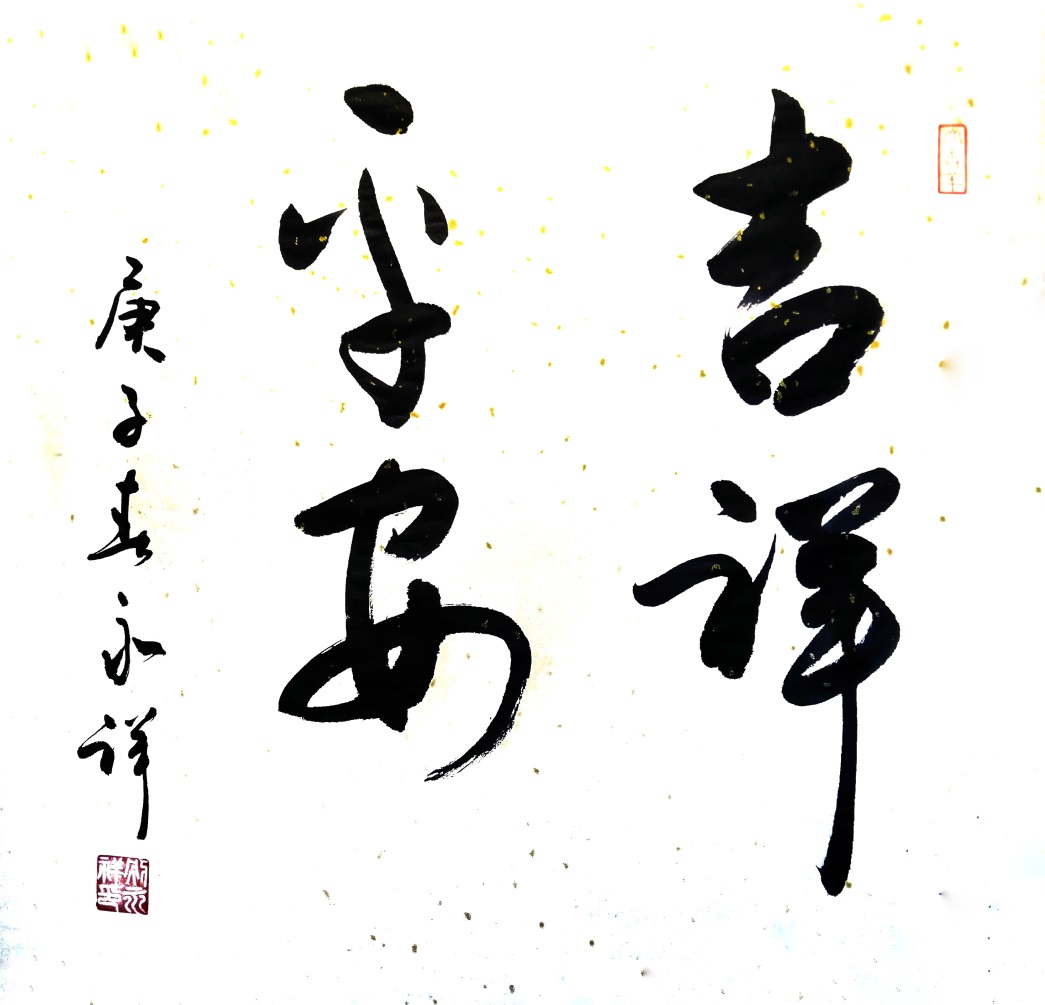 吉祥
平安
庚子春永祥